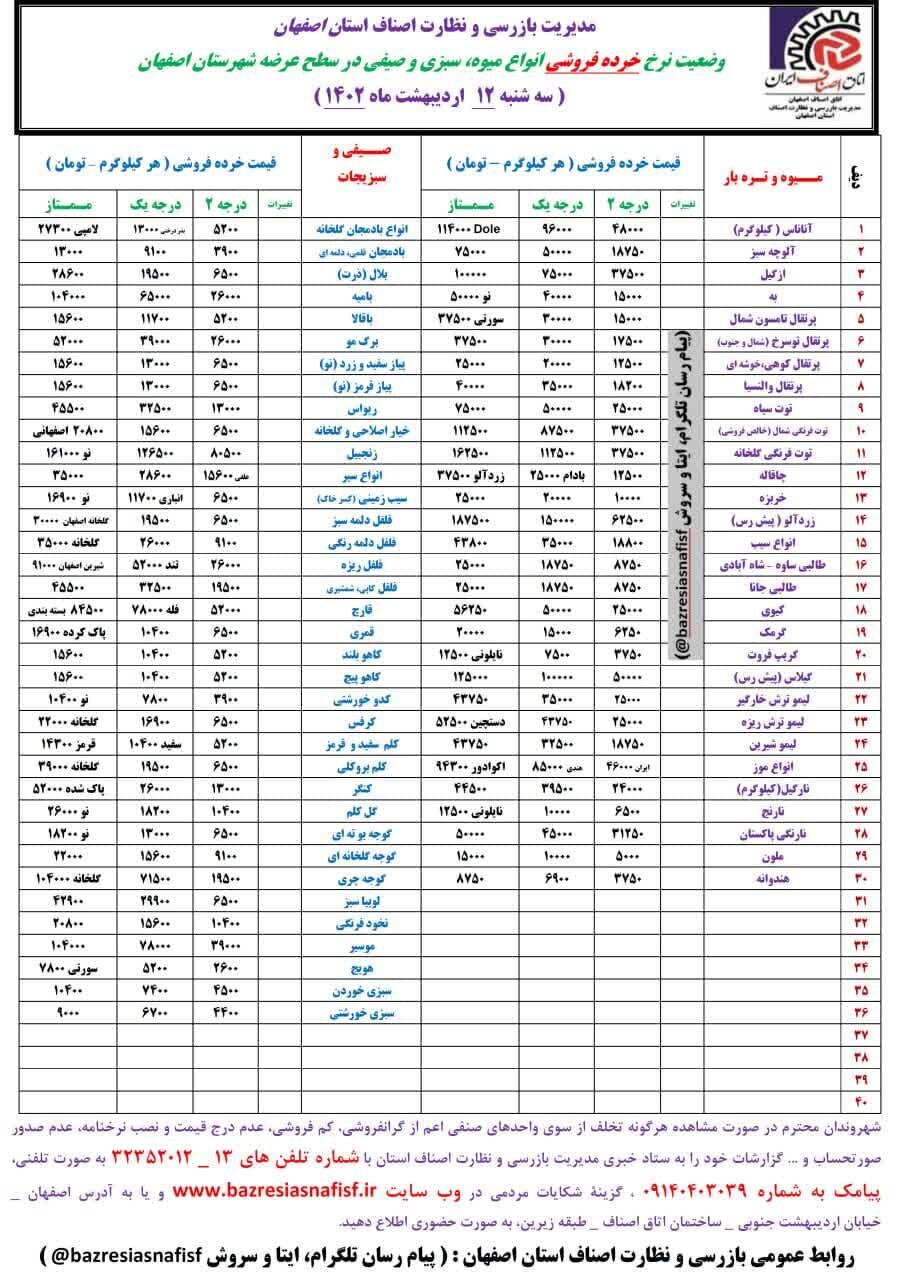 مدیریت بازرسی و نظارت اصناف استان اصفهان
وضعیت نرخ خرده فروشی انواع میوه، سبزی و صیفی در سطح عرضه شهرستان اصفهان
( سه شنبه ۱۲ اردیبهشت ماه ۱۴۰۲ )
اتاق اصناف ایران
اتاق اصناف اصفهان
مدیریت بازرسی و نظارت اصناف
استان اصفهان
دیف میوه و تره بار قیمت خرده فروشی ( هر کیلوگرم – تومان ) صیفی و سبزیجات قیمت خرده فروشی ( هر کیلوگرم – تومان )
تغییرات درجه ۲ درجه یک ممتاز تغییرات درجه ۲ درجه یک ممتاز
۱ آناناس ( کیلوگرم) ۴۸۰۰۰ ۹۶۰۰۰ ۱۱۴۰۰۰ Dole انواع بادمجان گلخانه ۵۲۰۰ بندرختی ۱۳۰۰۰ لامپی ۲۷۳۰۰
۲ آلوچه سبز ۱۸۷۵۰ ۵۰۰۰۰ ۷۵۰۰۰ بادمجان قلمی، دلمه ای ۳۹۰۰ ۹۱۰۰ ۱۳۰۰۰
۳ ازگیل ۳۷۵۰۰ ۷۵۰۰۰ ۱۰۰۰۰۰ بلال (ذرت) ۶۵۰۰ ۱۹۵۰۰ ۲۸۶۰۰
۴ به ۱۵۰۰۰ ۴۰۰۰۰ نو ۵۰۰۰۰ بامیه ۲۶۰۰۰ ۶۵۰۰۰ ۱۰۴۰۰۰
۵ پرتقال تامسون شمال ۱۵۰۰۰ ۳۰۰۰۰ سورتی ۳۷۵۰۰ باقالا ۵۲۰۰ ۱۱۷۰۰ ۱۵۶۰۰
۶ پرتقال توسرخ (شمال و جنوب) ۱۷۵۰۰ ۳۰۰۰۰ ۳۷۵۰۰ برگ مو ۲۶۰۰۰ ۳۹۰۰۰ ۵۲۰۰۰
۷ پرتقال کوهی،خوشه ای ۱۲۵۰۰ ۲۰۰۰۰ ۲۵۰۰۰ پیاز سفید و زرد (نو) ۶۵۰۰ ۱۳۰۰۰ ۱۵۶۰۰
۸ پرتقال والنسیا ۱۸۲۰۰ ۳۵۰۰۰ ۴۰۰۰۰ پیاز قرمز (نو) ۶۵۰۰ ۱۳۰۰۰ ۱۵۶۰۰
۹ توت سیاه ۲۵۰۰۰ ۵۰۰۰۰ ۷۵۰۰۰ ریواس ۱۳۰۰۰ ۳۲۵۰۰ ۴۵۵۰۰
۱۰ توت فرنگی شمال (خالص فروشی) ۳۷۵۰۰ ۸۷۵۰۰ ۱۱۲۵۰۰ خیار اصلاحی و گلخانه ۶۵۰۰ ۱۵۶۰۰ ۲۰۸۰۰ اصفهانی
۱۱ توت فرنگی گلخانه ۳۷۵۰۰ ۱۱۲۵۰۰ ۱۶۲۵۰۰ زنجبیل ۸۰۵۰۰ ۱۲۶۵۰۰ نو ۱۶۱۰۰۰
۱۲ چاقاله ۱۲۵۰۰ بادام ۲۵۰۰۰ زردآلو ۳۷۵۰۰ انواع سیر ۱۵۶۰۰ ۲۸۶۰۰ ۳۵۰۰۰
۱۳ خربزه ۱۰۰۰۰ ۲۰۰۰۰ ۲۵۰۰۰ سیب زمینی (کسر خاک) ۶۵۰۰ انباری ۱۱۷۰۰ نو ۱۶۹۰۰
۱۴ زردآلو ( پیش رس) ۶۲۵۰۰ ۱۵۰۰۰۰ ۱۸۷۵۰۰ فلفل دلمه سبز ۶۵۰۰ ۱۹۵۰۰ گلخانه اصفهان ۳۰۰۰۰
۱۵ انواع سیب ۱۸۸۰۰ ۳۵۰۰۰ ۴۳۸۰۰ فلفل دلمه رنگی ۹۱۰۰ ۲۶۰۰۰ گلخانه ۳۵۰۰۰
۱۶ طالبی ساوه – شاه آبادی ۸۷۵۰ ۱۸۷۵۰ ۲۵۰۰۰ فلفل ریزه ۲۶۰۰۰ تند ۵۲۰۰۰ شیرین اصفهان ۹۱۰۰۰
۱۷ طالبی جانا ۸۷۵۰ ۱۸۷۵۰ ۲۵۰۰۰ فلفل کاپی، شمشیری ۱۹۵۰۰ ۳۲۵۰۰ ۴۵۵۰۰
۱۸ کیوی ۲۵۰۰۰ ۵۰۰۰۰ ۵۶۲۵۰ قارچ ۵۲۰۰۰ فله ۷۸۰۰۰ ۸۴۵۰۰ بسته بندی
۱۹ گرمک ۶۲۵۰ ۱۵۰۰۰ ۲۰۰۰۰ قمری ۶۵۰۰ ۱۰۴۰۰ پاک کرده ۱۶۹۰۰
۲۰ گریپ فروت ۳۷۵۰ ۷۵۰۰ نایلونی ۱۲۵۰۰ کاهو بلند ۵۲۰۰ ۱۰۴۰۰ ۱۵۶۰۰
۲۱ گیلاس (پیش رس) ۵۰۰۰۰ ۱۰۰۰۰۰ ۱۲۵۰۰۰ کاهو پیچ ۵۲۰۰ ۱۰۴۰۰ ۱۵۶۰۰
۲۲ لیمو ترش خارگیر ۲۵۰۰۰ ۳۵۰۰۰ ۴۳۷۵۰ کدو خورشتی ۳۹۰۰ ۷۸۰۰ نو ۱۰۴۰۰
۲۳ لیمو ترش ریزه ۲۵۰۰۰ ۴۳۷۵۰ دستچین ۵۲۵۰۰ کرفس ۶۵۰۰ ۱۶۹۰۰ گلخانه ۲۲۰۰۰
۲۴ لیمو شیرین ۱۸۷۵۰ ۳۲۵۰۰ ۴۳۷۵۰ کلم سفید و قرمز ۵۲۰۰ سفید ۱۰۴۰۰ قرمز ۱۴۳۰۰
۲۵ انواع موز ایران ۴۶۰۰۰ هندی ۸۵۰۰۰ اکوادور ۹۴۳۰۰ کلم بروکلی ۶۵۰۰ ۱۹۵۰۰ گلخانه ۳۹۰۰۰
۲۶ نارگیل(کیلوگرم) ۲۴۰۰۰ ۳۹۵۰۰ ۴۴۵۰۰ کنگر ۱۳۰۰۰ ۲۶۰۰۰ پاک شده ۵۲۰۰۰
۲۷ نارنج ۶۵۰۰ ۱۰۰۰۰ نایلونی ۱۲۵۰۰ گل کلم ۱۰۴۰۰ ۱۸۲۰۰ نو ۲۶۰۰۰
۲۸ نارنگی پاکستان ۳۱۲۵۰ ۴۵۰۰۰ ۵۰۰۰۰ گوجه بوته ای ۶۵۰۰ ۱۳۰۰۰ نو ۱۸۲۰۰
۲۹ ملون ۵۰۰۰ ۱۰۰۰۰ ۱۵۰۰۰ گوجه گلخانه ای ۹۱۰۰ ۱۵۶۰۰ ۲۲۰۰۰
۳۰ هندوانه ۳۷۵۰ ۶۹۰۰ ۸۷۵۰ گوجه چری ۱۹۵۰۰ ۷۱۵۰۰ گلخانه ۱۰۴۰۰۰
۳۱ لوبیا سبز ۶۵۰۰ ۲۹۹۰۰ ۴۲۹۰۰
۳۲ نخود فرنگی ۱۰۴۰۰ ۱۵۶۰۰ ۲۰۸۰۰
۳۳ موسیر ۳۹۰۰۰ ۷۸۰۰۰ ۱۰۴۰۰۰
۳۴ هویج ۲۶۰۰ ۵۲۰۰ سورتی ۷۸۰۰
۳۵ سبزی خوردن ۴۵۰۰ ۷۴۰۰ ۱۰۴۰۰
۳۶ سبزی خورشتی ۴۴۰۰ ۶۷۰۰ ۹۰۰۰
۳۷
۳۸
۳۹
۴۰
(پیام رسان تلگرام، ایتا و سروش bazresiasnafisf@)
شهروندان محترم در صورت مشاهده هرگونه تخلف از سوی واحدهای صنفی اعم از گرانفروشی، کم فروشی، عدم درج قیمت و نصب نرخنامه، عدم صدور
صورتحساب و ... گزارشات خود را به ستاد خبری مدیریت بازرسی و نظارت اصناف استان با شماره تلفن های ۱۳ _ ۳۲۳۵۲۰۱۲ به صورت تلفنی،
پیامک به شماره ۰۹۱۴۰۴۰۳۰۳۹ ، گزینهٔ شکایات مردمی در وب سایت www.bazresiasnafisf.ir و یا به آدرس اصفهان _
خیابان اردیبهشت جنوبی _ ساختمان اتاق اصناف _ طبقه زیرین، به صورت حضوری اطلاع دهید.
روابط عمومی بازرسی و نظارت اصناف استان اصفهان : ( پیام رسان تلگرام، ایتا و سروش bazresiasnafisf@ )